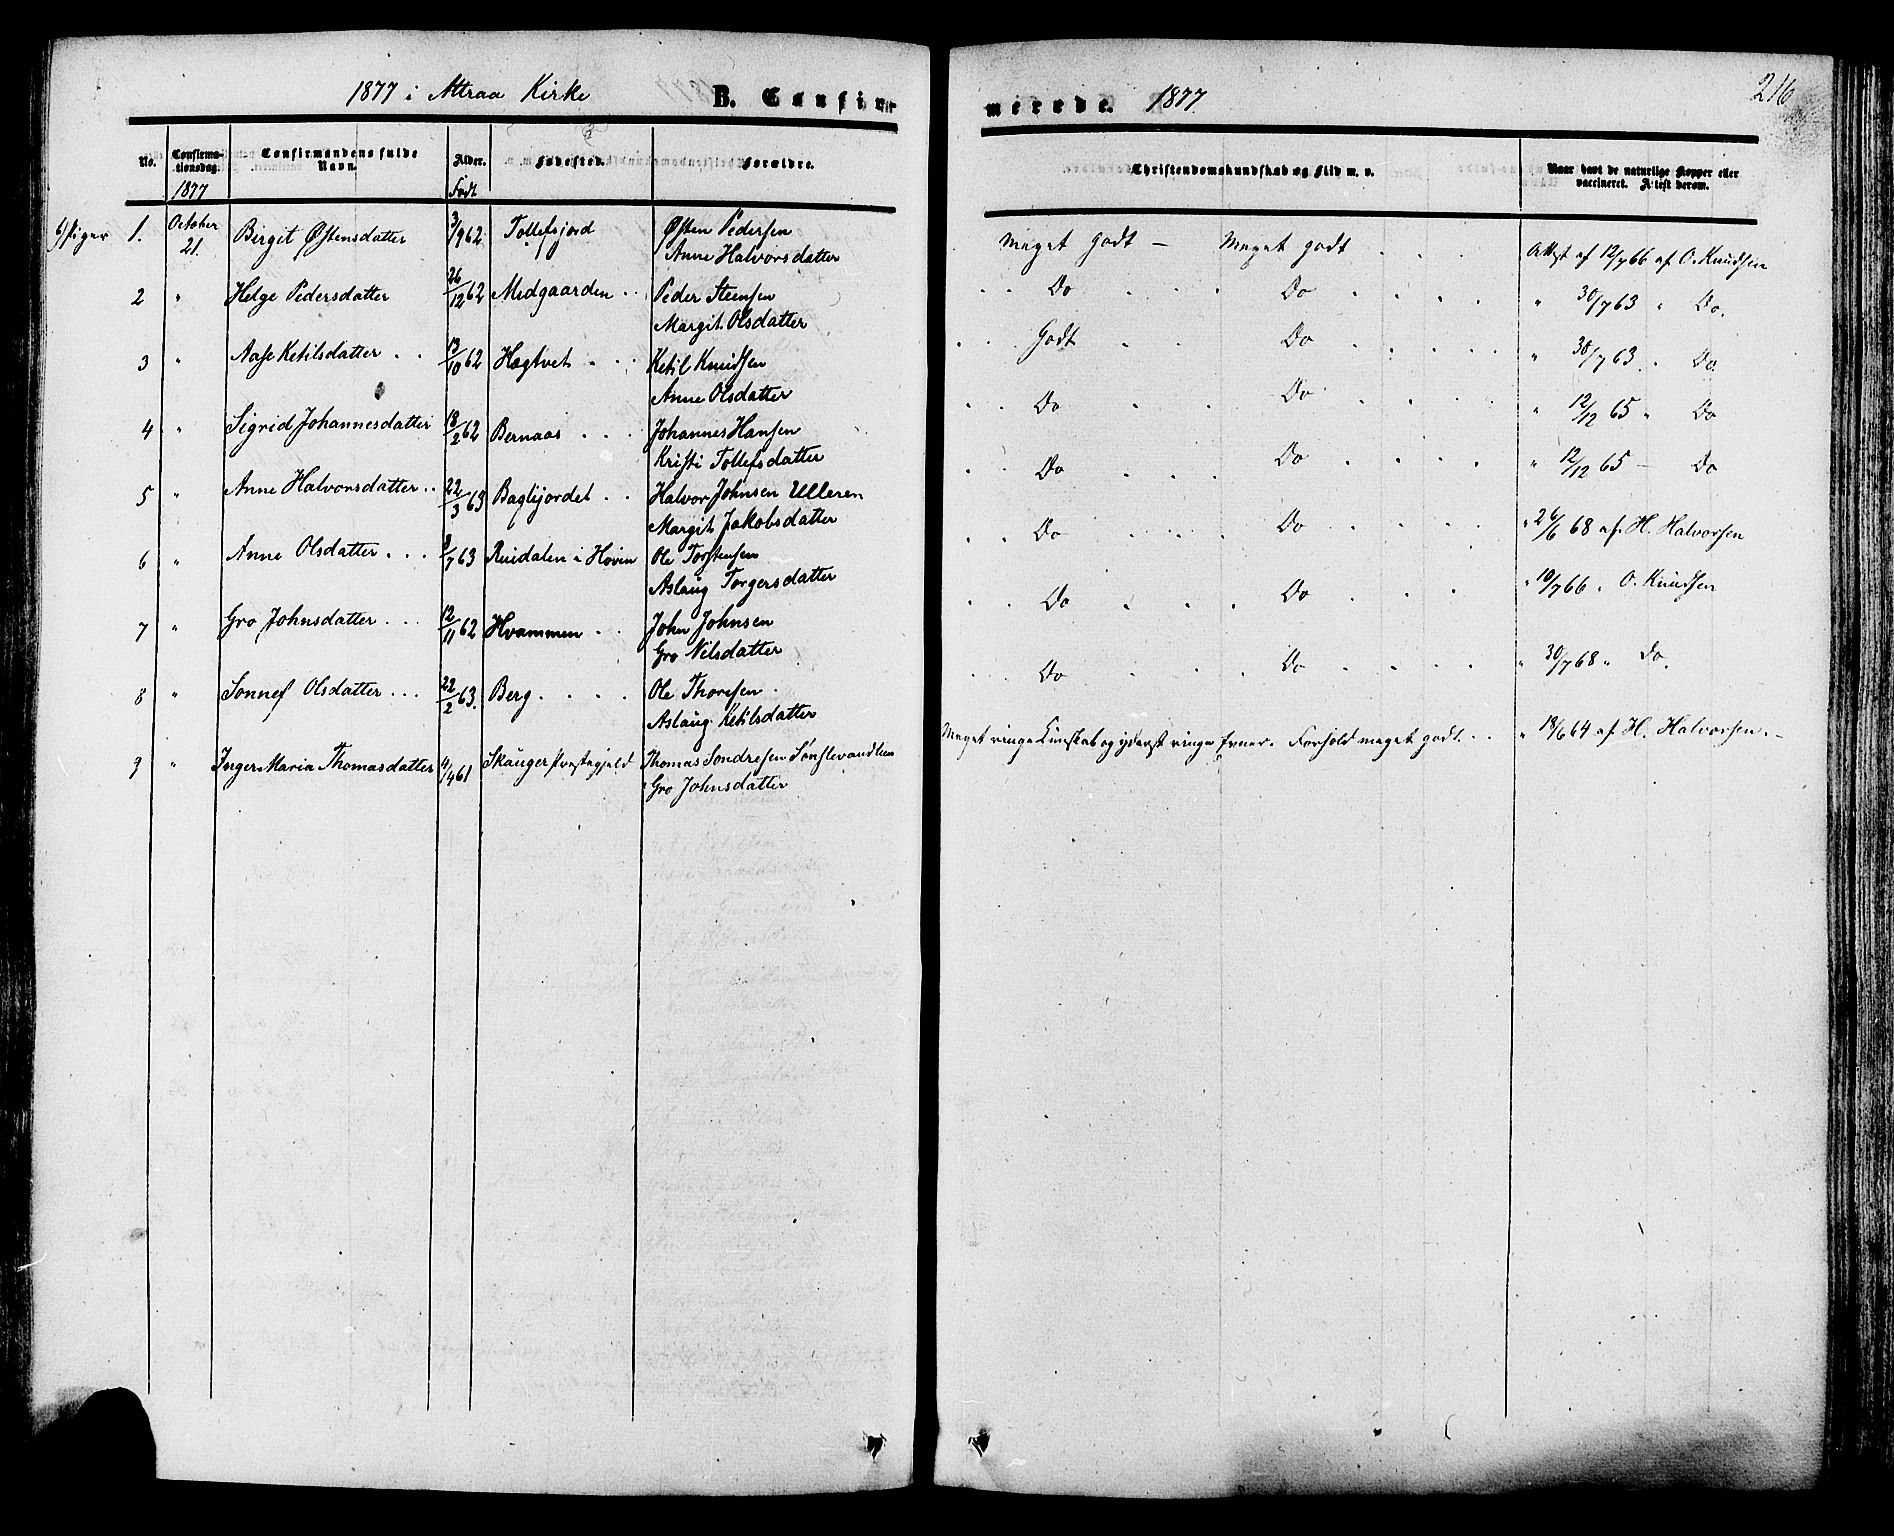 1877 i Attraa Kirke B. Confir
merede. 1877 216
No. Confirma-tionsdag. Confirmandens fulde Navn. Alder. Fødested. Forældre. Christendomskundskab og Flid m. v. Naar havt de naturlige Kopper eller vaccineret. Attest derom.
1877 Født
b) Piger 1. October 21. Birgit Østensdatter 3/9 62 Tollefsjord Østen Pedersen Meget godt — Meget godt . . . Attest af 12/7 66 af O. Knudsen
Anne Halvorsdatter
2 " Helge Pedersdatter 26/12 62 Midgaarden . . Peder Steensen . . Do . . . Do . . . . " 30/7 63 " Do.
Margit Olsdatter
3 " Aase Ketilsdatter . . 13/10 62 Hægtvet . . . Ketil Knudsen . . Godt . . Do . . . . " 30/7 63 . " Do
Anne Olsdatter
4 " Sigrid Johannesdatter 18/2 62 Bernaas . . . Johannes Hansen . . Do . . Do . . . . " 12/12 65 " Do
Kristi Tollefsdatter
5 " Anne Halvorsdatter . . 22/3 63 Bøglijordet . . Halvor Johnsen Ulleren . . Do . . . Do . . . . " 12/12 65 — Do
Margit Jakobsdatter
6 " Anne Olsdatter . . . 8/7 63 Ruidalen i Hovin Ole Torstensen . . Do . . . Do . . . . " 26/6 68 af H. Halvorsen
Aslaug Torgersdatter
7 " Gro Johnsdatter . . . 12/11 62 Hvammen . . John Johnsen . . Do . . . Do . . . " 10/7 66 " O. Knudsen
Gro Nilsdatter
8 " Sønnef Olsdatter . . . 22/2 63. Berg . . . . Ole Thoresen . . . Do . . . Do . . . . " 30/7 68 " Do.
Aslaug Ketilsdatter
9 " Inger Maria Thomasdatter 4/4 61 Skauger Prestegjeld Thomas Sondresen Meget ringe Kundskab og yderst ringe Evner. Forhold meget godt. . . " 18/6 64 af H. Halvorsen. —
Gro Johnsdatter